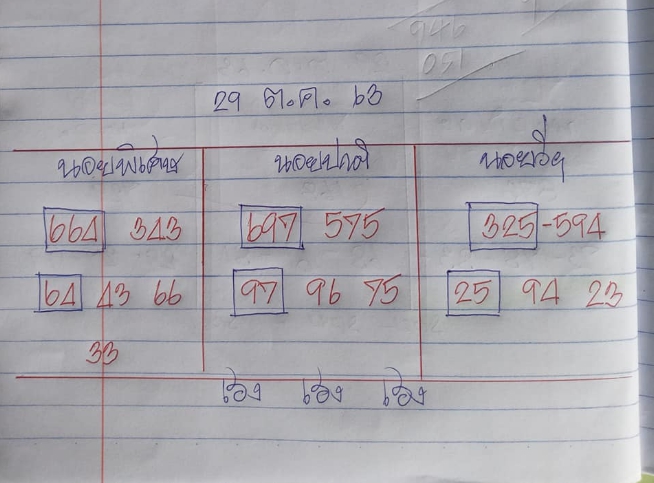 29 ต.ค. 63
นอยพิเศษ นอยปกติ นอยวีไอ
664 343 697 575 325-594
64 43 66 97 96 75 25 94 23
33
เฮง เฮง เฮง